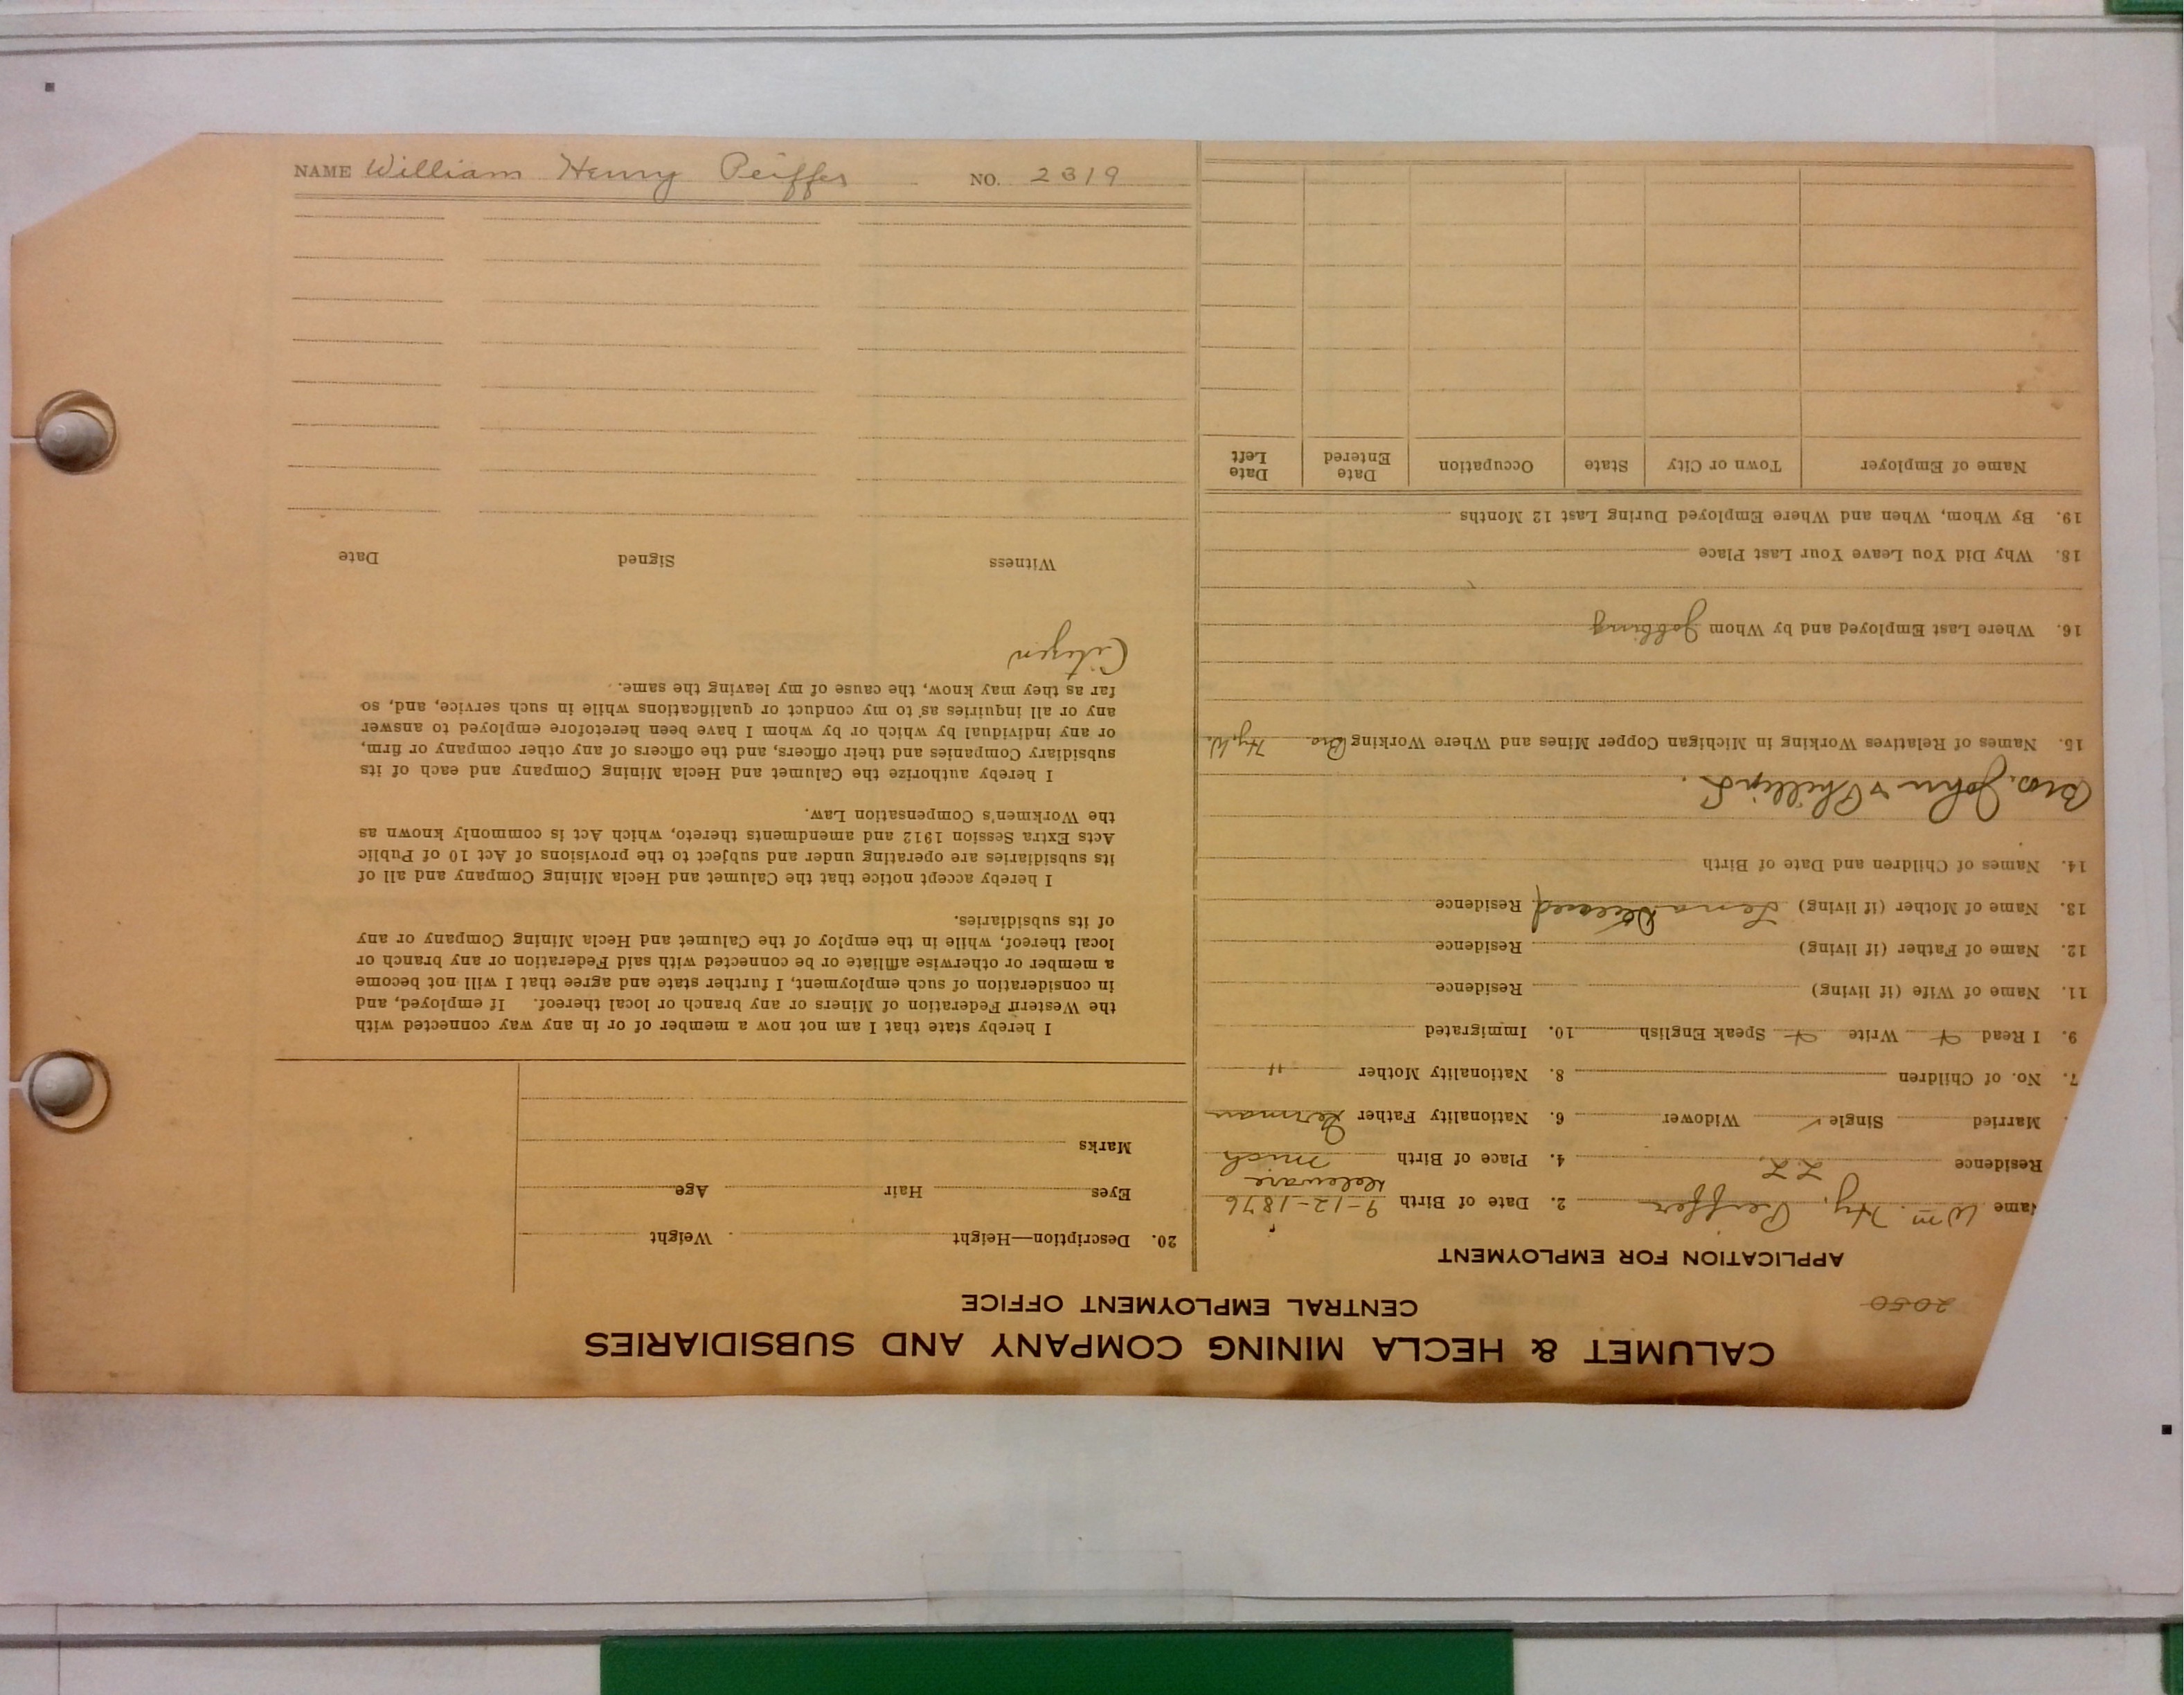 NAME William Henry Peiffer NO. 2319
2050
CALUMET & HECLA MINING COMPANY AND SUBSIDIARIES
CENTRAL EMPLOYMENT OFFICE
APPLICATION FOR EMPLOYMENT
Name Wm. Hy. Peiffer 2. Date of Birth 9-12-1876
Deleware
Residence L.L. 4. Place of Birth Mich
Married Single ✓ Widower 6. Nationality Father German
7. No. of Children 8. Nationality Mother "
9. I Read Write Speak English 10. Immigrated
11. Name of Wife (if living) Residence
12. Name of Father (if living) Residence
13. Name of Mother (if living) Lena Deceased Residence
14. Names of Children and Date of Birth
Bros. John & Phillip
15. Names of Relatives Working in Michigan Copper Mines and Where Working Bro. Hy. W.
16. Where Last Employed and by Whom Jobbing
18. Why Did You Leave Your Last Place
19. By Whom, When and Where Employed During Last 12 Months
Name of Employer Town or City State Occupation Date Entered Date Left
20. Description—Height Weight
Eyes Hair Age
Marks
I hereby state that I am not now a member of or in any way connected with
the Western Federation of Miners or any branch or local thereof. If employed, and
in consideration of such employment, I further state and agree that I will not become
a member or otherwise affiliate or be connected with said Federation or any branch or
local thereof, while in the employ of the Calumet and Hecla Mining Company or any
of its subsidiaries.
I hereby accept notice that the Calumet and Hecla Mining Company and all of
its subsidiaries are operating under and subject to the provisions of Act 10 of Public
Acts Extra Session 1912 and amendments thereto, which Act is commonly known as
the Workmen's Compensation Law.
I hereby authorize the Calumet and Hecla Mining Company and each of its
subsidiary Companies and their officers, and the officers of any other company or firm,
or any individual by which or by whom I have been heretofore employed to answer
any or all inquiries as to my conduct or qualifications while in such service, and, so
far as they may know, the cause of my leaving the same.
Citizen
Witness Signed Date